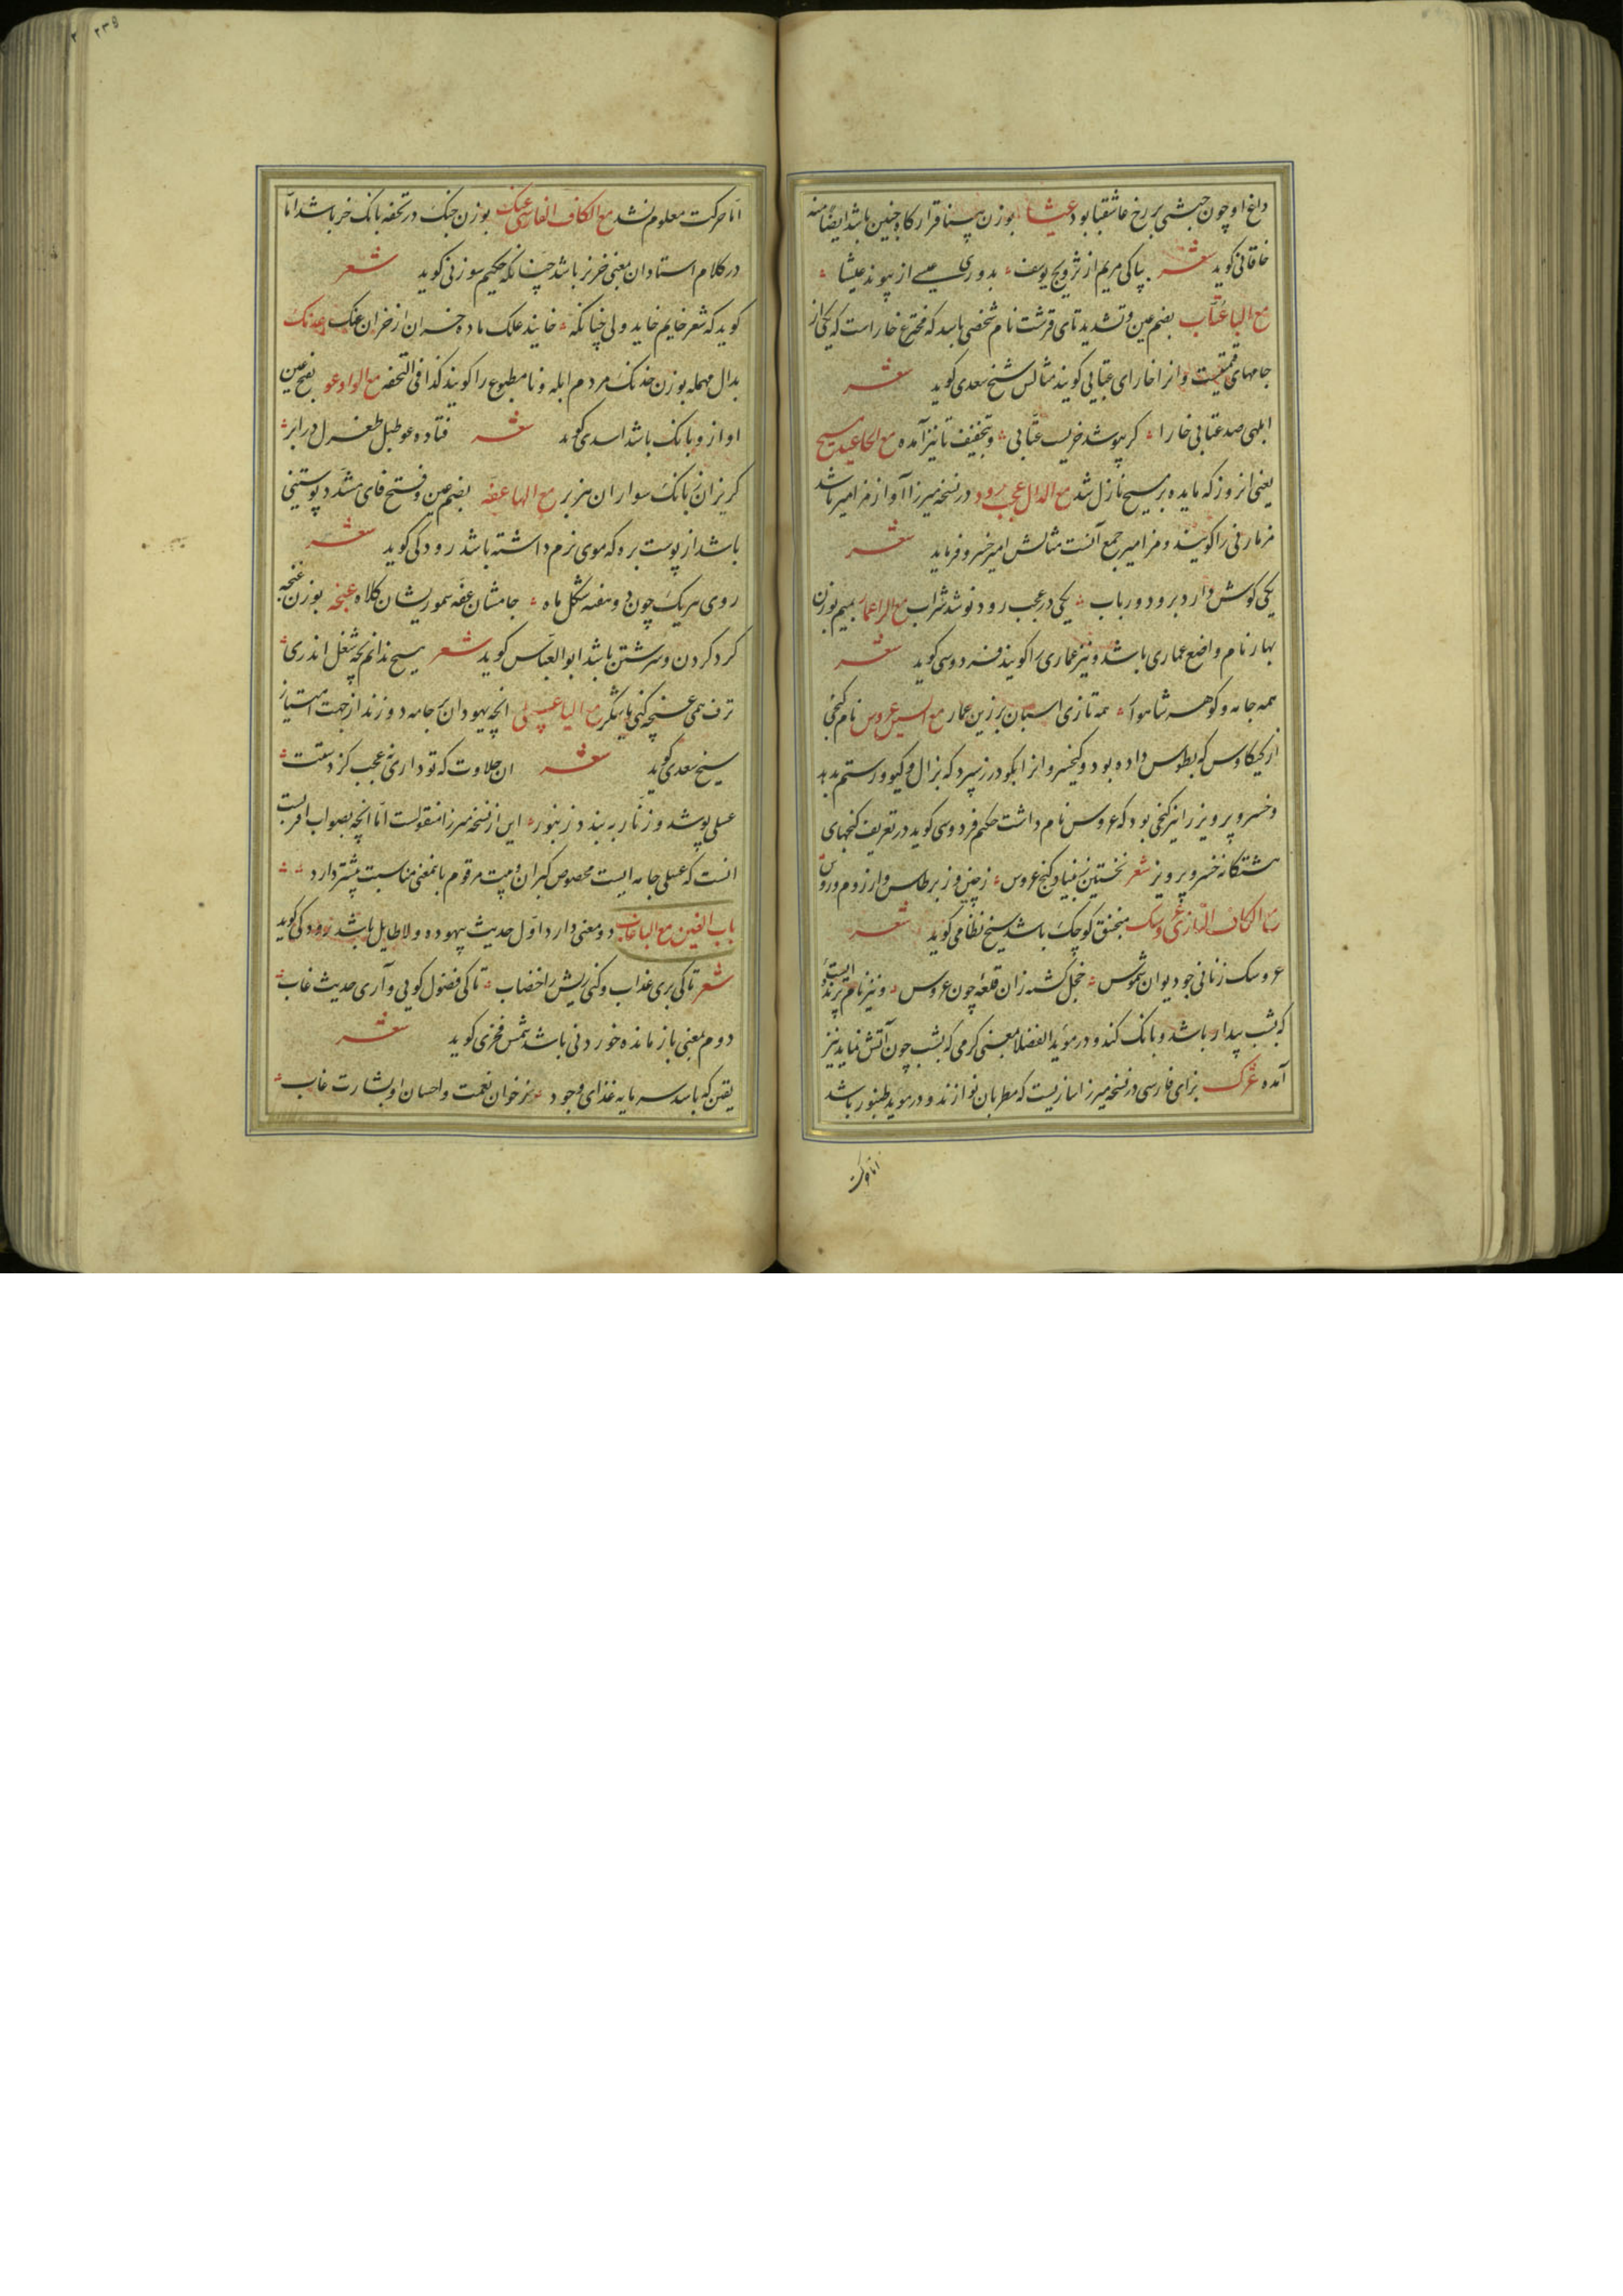 داغ او چون حبشی بر رخ عاشقبابود عیشا بوزن پینا قرارگاه جنین باشد ایضا منه
خاقانی کوید شعر بپاکی مریم از تزویج یوسف بدوری عیسے از پیوند عیشا
مع البا عتّاب بضم عین و تشدید تای قرشت نام شخصی باسد که مخترع خار است که یکی از
جامهای قیمتیست و انرا خارای عتابی کویند مثالس شیخ سعدی کوید شعر
ابلهی صد عتابی خارا کر بپوشد خریست عتّابی و بتخفیف تا نیز آمده مع الحا عید مسیح
یعنی انروز که مایده بر مسیح نازل شد مع الدال عجب رود در نسخه میرزا آواز مزامیر باشد
مزمار نی را کویند و مزامیر جمع آنست مثالش امیر خسرو فرماید شعر
یکی کوش دارد برود و رباب یکی در عجب رود نوشد شراب مع الرا عمار بمیم بوزن
بهار نام واضع عماری باشد و نیز عماری را کویند فردوسی کوید شعر
همه جامه و کوهر شاهوار همه تازی اسبان برزین عمار مع السین عروس نام کنجی
از کیکاوس که بطوس داده بود و کیخسرو انرا بکودرز سپرد که بزال و کیو و رستم بدهد
و خسرو پرویز را نیز کنجی بود که عروس نام داشت حکیم فردوسی کوید در تعریف کنجهای
هشتکانه خسرو پرویز شعر نخستین ز بنیاد کنج عروس ز چین و ز برطاس و از روم و روس
مع الکاف التازی عروسک منجنیق کوچک باشد شیخ نظامی کوید شعر
عروسک زنانی چو دیوان شموس خجل کشته زان قلعهٔ چون عروس و نیز نام پرنده ایست
که بشب بیدار باشد و بانک کند و در مؤید الفضلا بمعنی کرمی که بشب چون آتش نماید نیز
آمده عژک بزای فارسی در نسخه میرزا سازیست که مطربان نوازند و در مؤید طنبور باشد
اما حرکت
اما حرکت معلوم نشد مع الکاف الفارسی عنک بوزن جنک در تحفه بانک خر باشد امّا
در کلام استادان بمعنی خرنر باشد چنانکه حکیم سوزنی کوید شعر
کوید که شعر خایم خاید ولی چنانکه خایند علک ماده خران از خران عنک عدنک
بدال مهمله بوزن خدنک مردم ابله و نامطبوع را کویند کذا فی التحفه مع الواو عو بفتح عین
اواز و بانک باشد اسدی کوید شعر فتاده عو طبل طغرل در ابر
کریزان ز بانک سواران هزبر مع الها عفه بضم عین و فتح فای مشدد پوستینی
باشد از پوست بره که موی نرم داشته باشد رودکی کوید شعر
روی هر یک چون دو هفته شکل ماه جامشان عفه سموریشان کلاه عنجه بوزن غنجه
کرد کردن و سرشتن باشد ابو العباس کوید شعر هیچ ندانم بچه شغل اندری
ترف همی عنجه کنی یا شکر مع الیا عسلی انچه یهودان بر جامه دوزند از جهت امتیاز
شیخ سعدی کوید شعر ان حلاوت که تو داری نه عجب کز دستت
عسلی پوشد و زنار به بندد زنبور این از نسخه میرزا منقولست امّا انچه بصواب اقربست
انست که عسلی جامه ایست مخصوص کبران و بیت مرقوم باین معنی مناسبت پیشتر دارد
باب الغین مع البا غاب دو معنی دارد اوّل حدیث بیهوده و لاطایل باشد رودکی کوید
شعر تا کی بری عذاب و کنی ریش را خضاب تا کی فضول کویی و آری حدیث غاب
دوم بمعنی بازمانده خوردنی باشد شمس فخری کوید شعر
یقین که باسد سرمایه غذای وجود ز خوان نعمت و احسان او بشارت غاب
۲۳۵